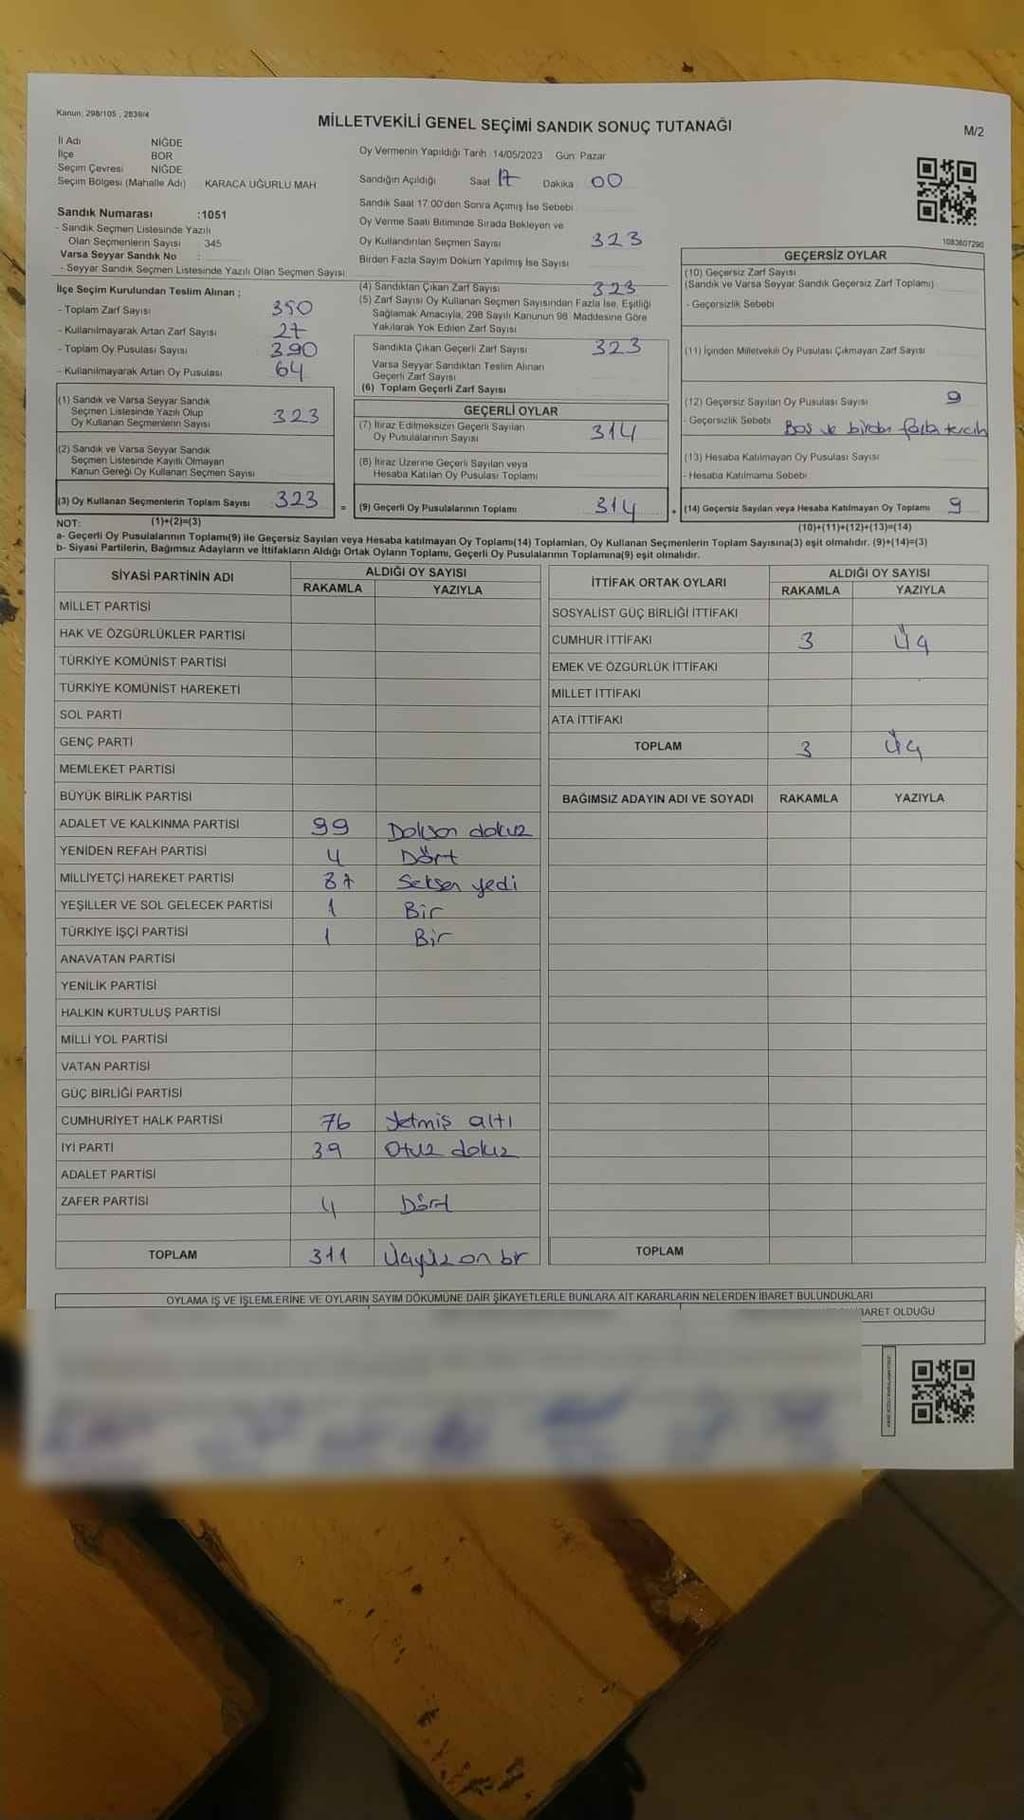 Kanun: 298/105 , 2839/4
MİLLETVEKİLİ GENEL SEÇİMİ SANDIK SONUÇ TUTANAĞI
M/2
İl Adı NİĞDE
İlçe BOR
Seçim Çevresi NİĞDE
Seçim Bölgesi (Mahalle Adı) KARACA UĞURLU MAH.
Oy Vermenin Yapıldığı Tarih 14/05/2023 Gün: Pazar
Sandığın Açıldığı Saat 17 Dakika 00
Sandık Saat 17:00'den Sonra Açımış İse Sebebi
Oy Verme Saati Bitiminde Sırada Bekleyen ve
Oy Kullandırılan Seçmen Sayısı 323
Birden Fazla Sayım Döküm Yapılmış İse Sayısı
Sandık Numarası :1051
- Sandık Seçmen Listesinde Yazılı
Olan Seçmenlerin Sayısı 345
Varsa Seyyar Sandık No :
- Seyyar Sandık Seçmen Listesinde Yazılı Olan Seçmen Sayısı
1083607290
İlçe Seçim Kurulundan Teslim Alınan ;
- Toplam Zarf Sayısı 350
- Kullanılmayarak Artan Zarf Sayısı 27
- Toplam Oy Pusulası Sayısı 390
- Kullanılmayarak Artan Oy Pusulası 64
(1) Sandık ve Varsa Seyyar Sandık
Seçmen Listesinde Yazılı Olup
Oy Kullanan Seçmenlerin Sayısı 323
(2) Sandık ve Varsa Seyyar Sandık
Seçmen Listesinde Kayıtlı Olmayan
Kanun Gereği Oy Kullanan Seçmen Sayısı
(3) Oy Kullanan Seçmenlerin Toplam Sayısı 323 =
(1)+(2)=(3)
(4) Sandıktan Çıkan Zarf Sayısı 323
(5) Zarf Sayısı Oy Kullanan Seçmen Sayısından Fazla İse, Eşitliği
Sağlamak Amacıyla, 298 Sayılı Kanunun 98. Maddesine Göre
Yakılarak Yok Edilen Zarf Sayısı
Sandıkta Çıkan Geçerli Zarf Sayısı 323
Varsa Seyyar Sandıktan Teslim Alınan
Geçerli Zarf Sayısı
(6) Toplam Geçerli Zarf Sayısı
GEÇERLİ OYLAR
(7) İtiraz Edilmeksizin Geçerli Sayılan
Oy Pusulalarının Sayısı 314
(8) İtiraz Üzerine Geçerli Sayılan veya
Hesaba Katılan Oy Pusulası Toplamı
(9) Geçerli Oy Pusulalarının Toplamı 314 +
GEÇERSİZ OYLAR
(10) Geçersiz Zarf Sayısı
(Sandık ve Varsa Seyyar Sandık Geçersiz Zarf Toplamı)
- Geçersizlik Sebebi
(11) İçinden Milletvekili Oy Pusulası Çıkmayan Zarf Sayısı
(12) Geçersiz Sayılan Oy Pusulası Sayısı 9
- Geçersizlik Sebebi Boş ve birden fazla tercih
(13) Hesaba Katılmayan Oy Pusulası Sayısı
- Hesaba Katılmama Sebebi
(14) Geçersiz Sayılan veya Hesaba Katılmayan Oy Toplamı 9
(10)+(11)+(12)+(13)=(14)
NOT:
a- Geçerli Oy Pusulalarının Toplamı(9) ile Geçersiz Sayılan veya Hesaba katılmayan Oy Toplamı(14) Toplamları, Oy Kullanan Seçmenlerin Toplam Sayısına(3) eşit olmalıdır. (9)+(14)=(3)
b- Siyasi Partilerin, Bağımsız Adayların ve İttifakların Aldığı Ortak Oyların Toplamı, Geçerli Oy Pusulalarının Toplamına(9) eşit olmalıdır.
SİYASİ PARTİNİN ADI ALDIĞI OY SAYISI
RAKAMLA YAZIYLA
MİLLET PARTİSİ
HAK VE ÖZGÜRLÜKLER PARTİSİ
TÜRKİYE KOMÜNİST PARTİSİ
TÜRKİYE KOMÜNİST HAREKETİ
SOL PARTİ
GENÇ PARTİ
MEMLEKET PARTİSİ
BÜYÜK BİRLİK PARTİSİ
ADALET VE KALKINMA PARTİSİ 99 Doksan dokuz
YENİDEN REFAH PARTİSİ 4 Dört
MİLLİYETÇİ HAREKET PARTİSİ 87 Seksen yedi
YEŞİLLER VE SOL GELECEK PARTİSİ 1 Bir
TÜRKİYE İŞÇİ PARTİSİ 1 Bir
ANAVATAN PARTİSİ
YENİLİK PARTİSİ
HALKIN KURTULUŞ PARTİSİ
MİLLİ YOL PARTİSİ
VATAN PARTİSİ
GÜÇ BİRLİĞİ PARTİSİ
CUMHURİYET HALK PARTİSİ 76 Yetmiş altı
İYİ PARTİ 39 Otuz dokuz
ADALET PARTİSİ
ZAFER PARTİSİ 4 Dört
TOPLAM 311 Üçyüz on bir
İTTİFAK ORTAK OYLARI ALDIĞI OY SAYISI
RAKAMLA YAZIYLA
SOSYALİST GÜÇ BİRLİĞİ İTTİFAKI
CUMHUR İTTİFAKI 3 Üç
EMEK VE ÖZGÜRLÜK İTTİFAKI
MİLLET İTTİFAKI
ATA İTTİFAKI
TOPLAM 3 Üç
BAĞIMSIZ ADAYIN ADI VE SOYADI RAKAMLA YAZIYLA
TOPLAM
OYLAMA İŞ VE İŞLEMLERİNE VE OYLARIN SAYIM DÖKÜMÜNE DAİR ŞİKAYETLERLE BUNLARA AİT KARARLARIN NELERDEN İBARET BULUNDUKLARI
BARET OLDUĞU